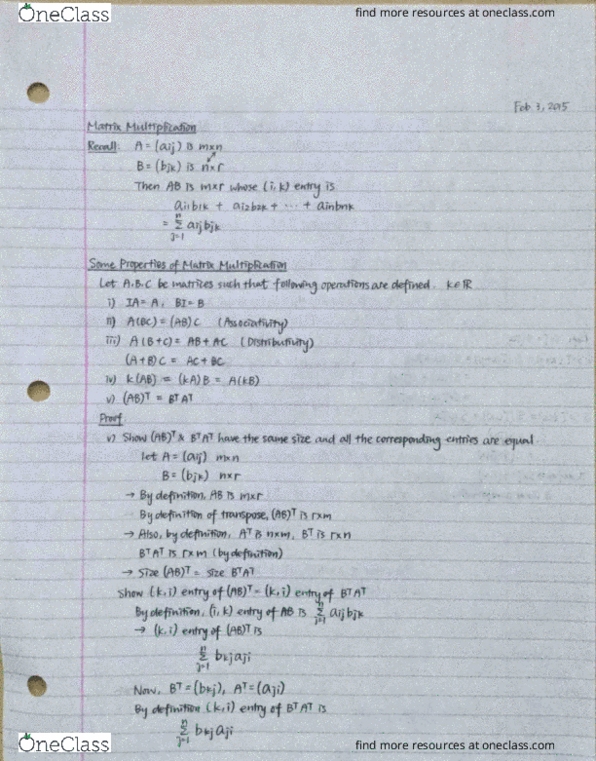 OneClass
find more resources at oneclass.com
Feb 3, 2015
Matrix Multiplication
Recall: A = (aij) is m×n
B = (bjk) is n×r
Then AB is m×r whose (i, k) entry is
ai1b1k + ai2b2k + ⋯ + ainbnk
= Σⁿj=1 aijbjk
Some Properties of Matrix Multiplication
Let A, B, C be matrices such that following operations are defined. k∈ℝ
i) IA = A, BI = B
ii) A(BC) = (AB)C (Associativity)
iii) A(B+C) = AB + AC (Distributivity)
(A+B)C = AC + BC
iv) k(AB) = (kA)B = A(kB)
v) (AB)ᵀ = BᵀAᵀ
Proof
v) Show (AB)ᵀ & BᵀAᵀ have the same size and all the corresponding entries are equal
let A = (aij) m×n
B = (bjk) n×r
→ By definition, AB is m×r
By definition of transpose, (AB)ᵀ is r×m
→ Also, by definition, Aᵀ is n×m, Bᵀ is r×n
BᵀAᵀ is r×m (by definition)
→ Size (AB)ᵀ = size BᵀAᵀ
Show (k,i) entry of (AB)ᵀ = (k,i) entry of BᵀAᵀ
By definition, (i, k) entry of AB is Σⁿj=1 aijbjk
→ (k,i) entry of (AB)ᵀ is
Σⁿj=1 bkjaji
Now, Bᵀ = (bkj), Aᵀ = (aji)
By definition (k,i) entry of BᵀAᵀ is
Σⁿj=1 bkjaji
OneClass
find more resources at oneclass.com